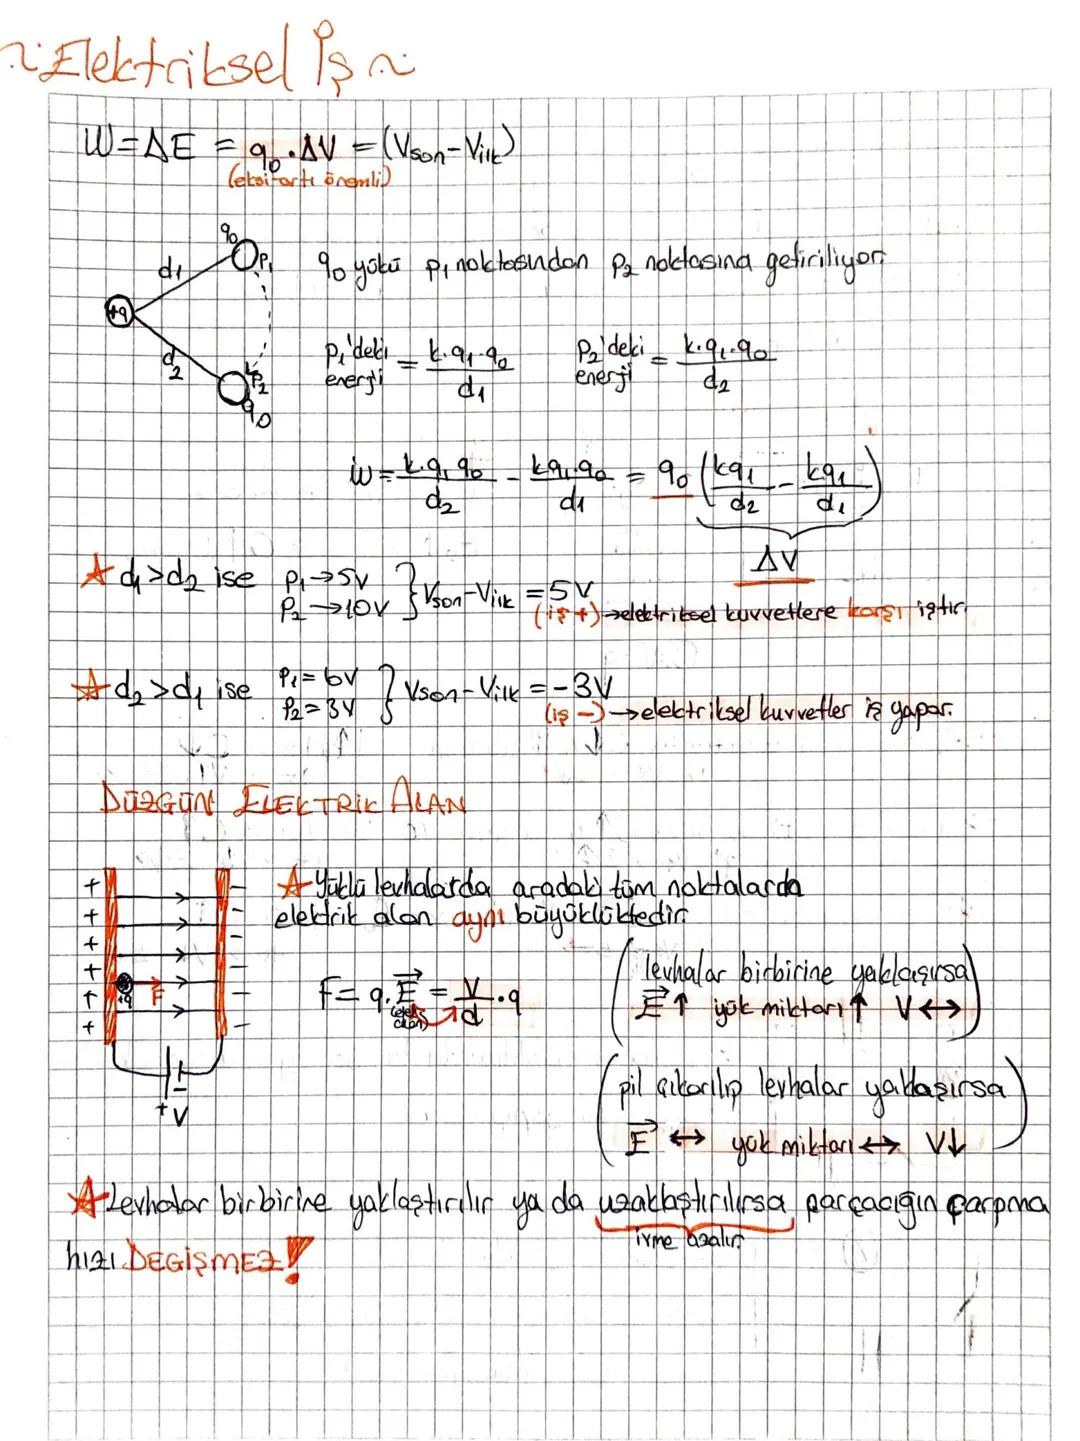 Elektriksel İş
W=ΔE = q₀.ΔV = (Vson-Vilk)
(eksi artı önemli)
q₀
d₁ P₁
+q
d₂ P₂
q₀
q₀ yükü P₁ noktasından P₂ noktasına getiriliyor.
P₁'deki enerji = k.q₁.q₀/d₁ P₂'deki enerji = k.q₁.q₀/d₂
W = k.q₁q₀/d₂ - kq₁.q₀/d₁ = q₀ (kq₁/d₂ - kq₁/d₁)
ΔV
d₁>d₂ ise P₁→5V
P₂→10V } Vson-Vilk = 5V
(iş +)→elektriksel kuvvetlere karşı iştir.
d₂>d₁ ise P₁=6V
P₂=3V } Vson-Vilk = -3V
(iş -)→elektriksel kuvvetler iş yapar.
DÜZGÜN ELEKTRİK ALAN
Yüklü levhalarda aradaki tüm noktalarda
elektrik alan aynı büyüklüktedir.
+ -
+ -
+ -
+ -
+ -
+ -
+q F
+ V
F = q.E = V/d.q
(elek. alan)
(levhalar birbirine yaklaşırsa
E↑ yük miktarı↑ V↔)
(pil çıkarılıp levhalar yaklaşırsa
E ↔ yük miktarı↔ V↓)
Levhalar birbirine yaklaştırılır ya da uzaklaştırılırsa parçacığın çarpma
ivme azalır.
hızı DEĞİŞMEZ!